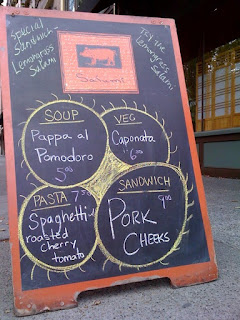 Special
Sandwich-
Lemongrass
Salami
Try the
Lemongrass
Salami
Salumi
SOUP
Pappa al
Pomodoro
5.00
VEG
Caponata
6.00
PASTA 7
Spaghetti
roasted
cherry
tomato
SANDWICH
9.00
PORK
CHEEKS